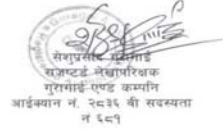 सेशुप्रसाद गुरागाई
राजष्टर्ड लेखापरिक्षक
गुरागाई एण्ड कम्पनि
आईक्यान नं. २८३६ बी सदस्यता
नं ६८१